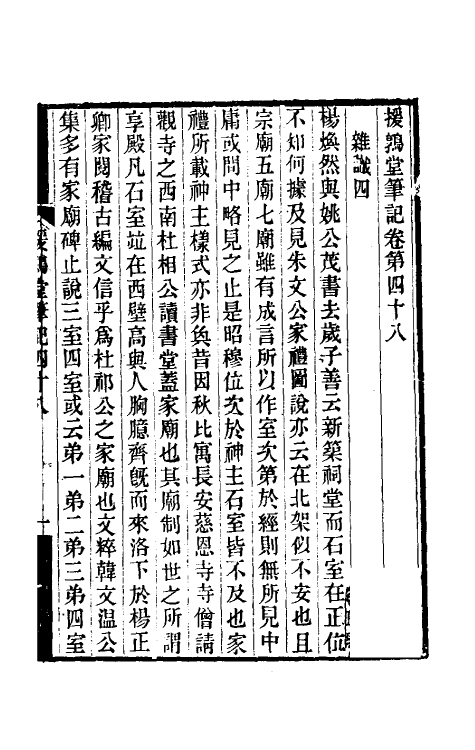 援鶉堂筆記卷第四十八
雜識四
楊煥然與姚公茂書去歲子善云新築祠堂而石室在正位
不知何據及見朱文公家禮圖說亦云在北架似不安也且
宗廟五廟七廟雖有成言所以作室次第於經則無所見中
庸或問中略見之止是昭穆位次於神主石室皆不及也家
禮所載神主樣式亦非奐昔因秋比寓長安慈恩寺寺僧請
觀寺之西南杜相公讀書堂蓋家廟也其廟制如世之所謂
享殿凡石室竝在西壁高與人胸臆齊旣而來洛下於楊正
卿家閱稽古編文信乎爲杜祁公之家廟也文粹韓文溫公
集多有家廟碑止說三室四室或云弟一弟二弟三弟四室
援鶉堂筆記四十八 一